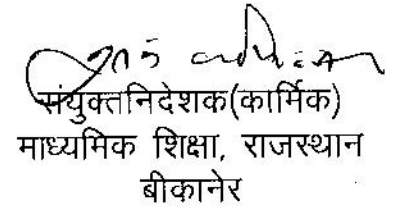 संयुक्तनिदेशक(कार्मिक)
माध्यमिक शिक्षा, राजस्थान
बीकानेर